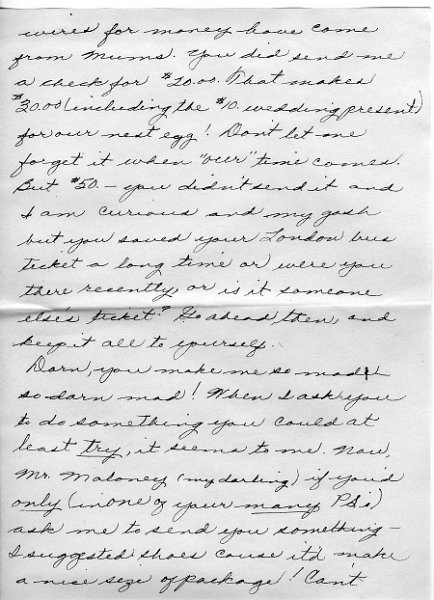 wires for money have come
from Mums. You did send me
a check for $20.00. That makes
$30.00 (including the $10. wedding present)
for our nest egg! Don't let me
forget it when "our" time comes.
But $50. – you didn't send it and
I am curious and my gosh
but you saved your London bus
ticket a long time or were you
there recently, or is it someone
else's ticket? Go ahead, then, and
keep it all to yourself.
Darn, you make me so mad
so darn mad! When I ask you
to do something you could at
least try, it seems to me. Now,
Mr. Maloney (my darling) if you'd
only (in one of your many PS's)
ask me to send you something –
I suggested shoes cause it'd make
a nice size of package! Can't